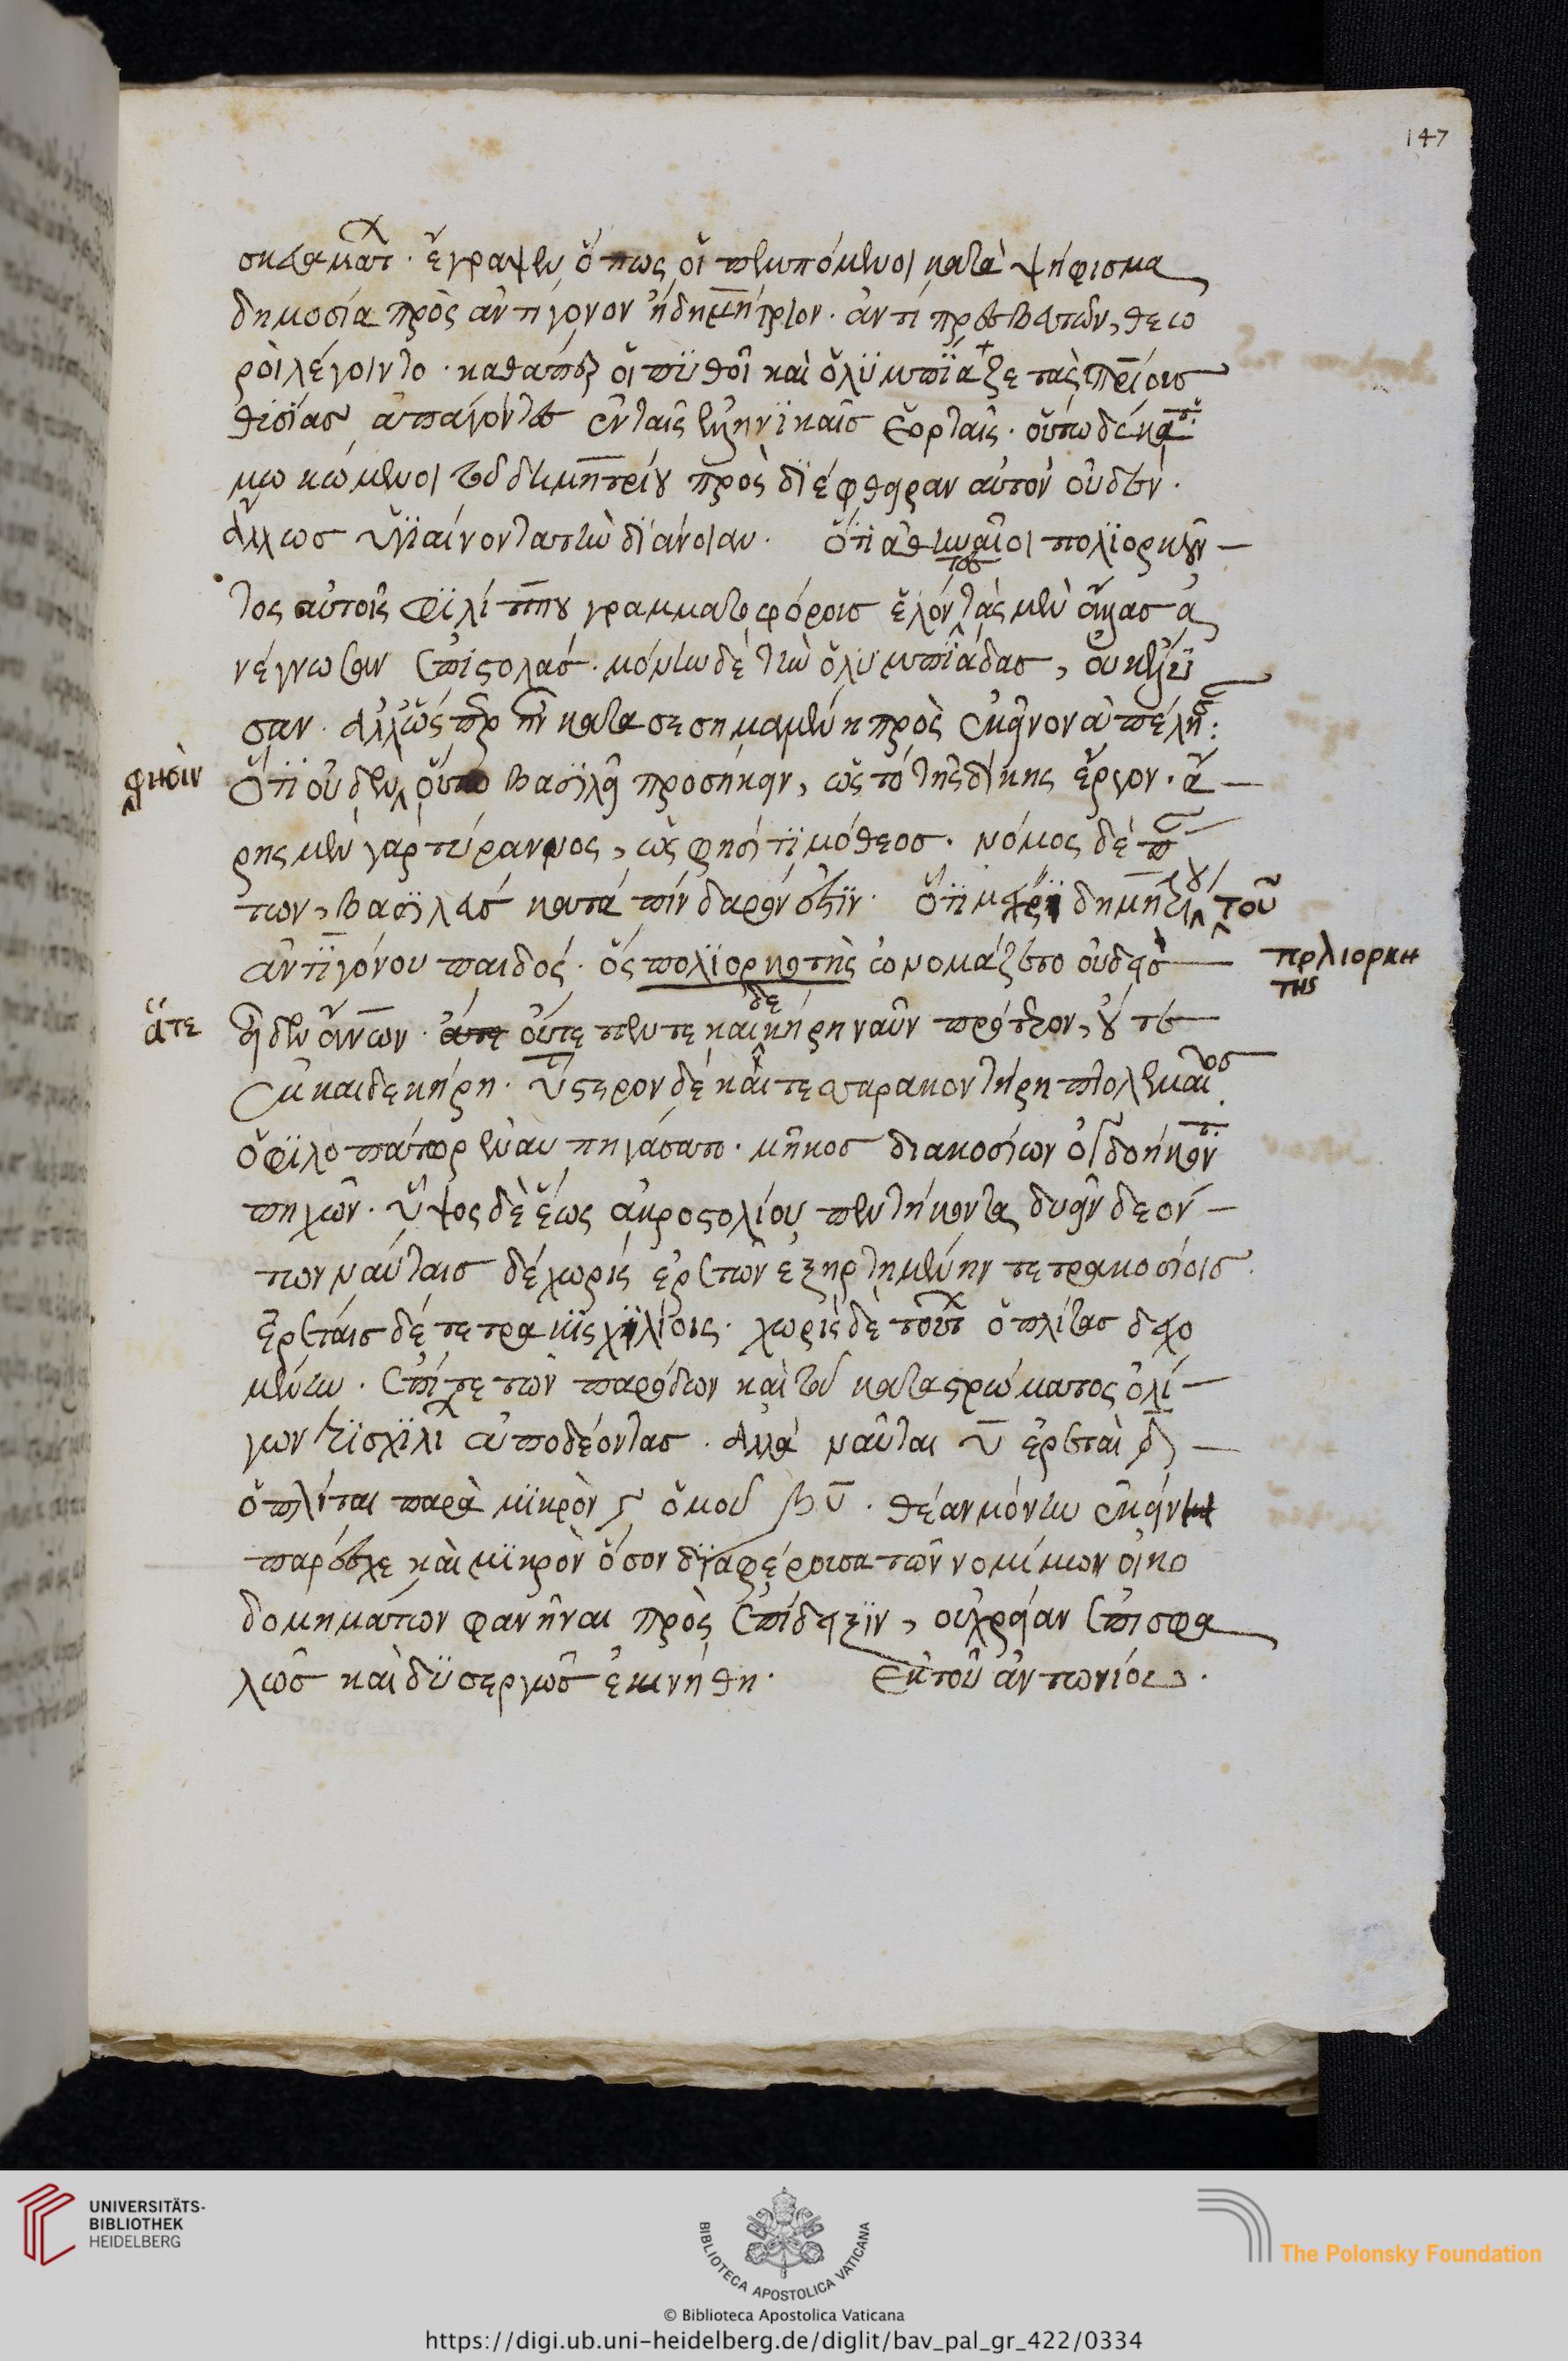 147
σκευαμάτ. ἔγραψεν ὅπως οἱ πεμπόμενοι κατὰ ψήφισμα
δημοσία πρὸς ἀντίγονον ἢ δημήτριον. ἀντὶ πρεσβευτῶν, θεω
ροὶ λέγοιντο. καθάπερ οἱ πϋθοῖ καὶ ὀλϋμπΐαζε τὰς πατρίους
θϋσΐας ἀπάγοντες ἐν ταῖς ἑλληνϊκαῖς ἑορταῖς. οὕτω δὲ κατα
μωκώμενοι τοῦ δημητρίου προσδϊέφθειραν αὐτὸν οὐδὲν.
ἄλλως ὑγϊαίνοντα τὴν δϊάνοιαν. ὅτϊ ἀθηναῖοι πολϊορκοῦν
τος αὐτοῖς φϊλίππου γραμματοφόροις ἑλόντας μὲν ἄλλας ἀ
νέγνωσαν ἐπιστολάς. μόνην δὲ τὴν ὀλϋμπϊάδος, οὐκ ἔλϋ
σαν. ἀλλ' ὥσπερ ἦν κατασεσημασμένη πρὸς ἐκεῖνον ἀπέστειλαν:
φησὶν ὅτϊ οὐδὲν οὕτω βασϊλεῖ προσήκειν, ὡς τὸ τῆς δίκης ἔργον. ἄ
ρης μὲν γὰρ τύραννος, ὥς φησι τϊμόθεος. νόμος δὲ πάν
των, βασϊλεὺς κατὰ πίνδαρόν ἐστϊν. ὅτϊ δημητρίου τοῦ
ἀντϊγόνου παιδός. ὃς πολϊορκητὴς ὠνομάζετο οὐδεὶς
πολιορκη
της
ἅτε εἶδεν ἀνθρώπων. οὔτε πεντεκαιδεκήρη ναῦν πρότερον, οὔτε
ἑκκαιδεκήρη. ὕστερον δὲ καὶ τεσσαρακοντήρη πτολεμαῖος
ὁ φϊλοπάτωρ ἐναυπηγήσατο. μῆκος διακοσίων ὀγδοήκοντα
πηχῶν. ὕψος δὲ ἕως ἀκροστολίου πεντήκοντα δυεῖν δεόν
των ναύταις δὲ χωρὶς ἐρετῶν ἐξηρτημένην τετρακοσίοις.
ἐρέταις δὲ τετρακϊσχϊλίοις. χωρὶς δὲ τούτων ὁπλίτας δεχο
μένην. ἐπί τε τῶν παρόδων καὶ τοῦ καταστρώματος ὀλί
γων τρϊσχϊλίων ἀποδέοντας. ἀλλὰ ναῦται υ ἐρέται δ
ὁπλῖται παρὰ μϊκρὸν γ ὁμοῦ ζυ. θέαν μόνην ἐκείνη
παρέσχε καὶ μϊκρὸν ὅσον δϊαφέρουσα τῶν νομίμων οἰκο
δομημάτων φανῆναι πρὸς ἐπίδειξϊν, οὐ χρείαν ἐπισφα
λῶς καὶ δϋσεργῶς ἐκινήθη. ἐκ τοῦ ἀντωνίου.
UNIVERSITÄTS-
BIBLIOTHEK
HEIDELBERG
BIBLIOTECA APOSTOLICA VATICANA
The Polonsky Foundation
© Biblioteca Apostolica Vaticana
https://digi.ub.uni-heidelberg.de/diglit/bav_pal_gr_422/0334